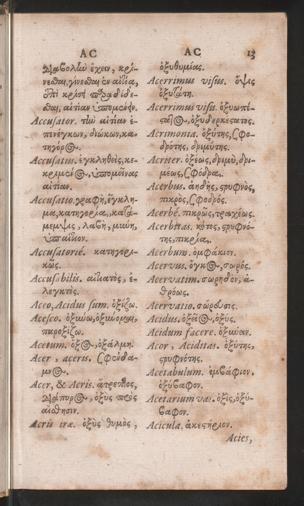 AC AC 13
διαβολὴν ἔχειν, κρί-
νεσθαι, γίνεσθαι ἐν αἰτίᾳ,
ὑπὸ κρίσιν παραδίδο-
σθαι, αἰτίαν ὑπομένειν.
Accusator. τὴν αἰτίαν ἐ-
πιπέγκων, διώκων, κα-
τήγορος.
Accusatus. ἐγκληθεὶς, κε-
κριμένος, ὑπομείνας
αἰτίαν.
Accusatio. γραφὴ, ἔγκλη-
μα, κατηγορία, κατά-
μεμψις, λαβὴ, μωνὴ,
ὑπαίτιον.
Accusatoriè. κατηγορι-
κῶς.
Accusabilis. αἰτιατὸς, ἐ-
λεγκτός.
Aceo, Acidus sum. ὀξίζω.
Acesco. ὀξύνω, ὀξύνομαι,
παροξίζω.
Acetum. ὄξος, ὀξάλμη.
Acer, aceris. σφένδα-
μνος.
Acer, & Acris. ἄτρεστος,
διάπυρος, ὀξὺς πρὸς
αἴσθησιν.
Acris irae. ὀξὺς θυμὸς,
ὀξυθυμίας.
Acerrimus visus. ὄψις
ὀξυτάτη.
Acerrimus visu. ὀξυωπέ-
στατος, ὀξυδερκέστατος.
Acrimonia. ὀξύτης, σφο-
δρότης, δριμύτης.
Acriter. ὀξέως, δριμὺ, δρι-
μέως, σφόδρα.
Acerbus. ἀηδὴς, στρυφνὸς,
πικρὸς, σφοδρός.
Acerbè. πικρῶς, τραχέως.
Acerbitas. κότος, στρυφνό-
της, πικρία.
Acerbum. ὀμφάκιον.
Acervus. ὄγκος, σωρός.
Acervatim. σωρηδὸν, ἀ-
θρόως.
Acervatio. σώρευσις.
Acidus. ὀξώδης, ὀξύς.
Acidum facere. ὀξύναι.
Acor, Aciditas. ὀξύτης,
στρυφνότης.
Acetabulum. ἐμβάφιον,
ὀξύβαφον.
Acetarium vas. ὀξὶς, ὀξύ-
βαφον.
Acicula. ἀκέστριον.
Acies,